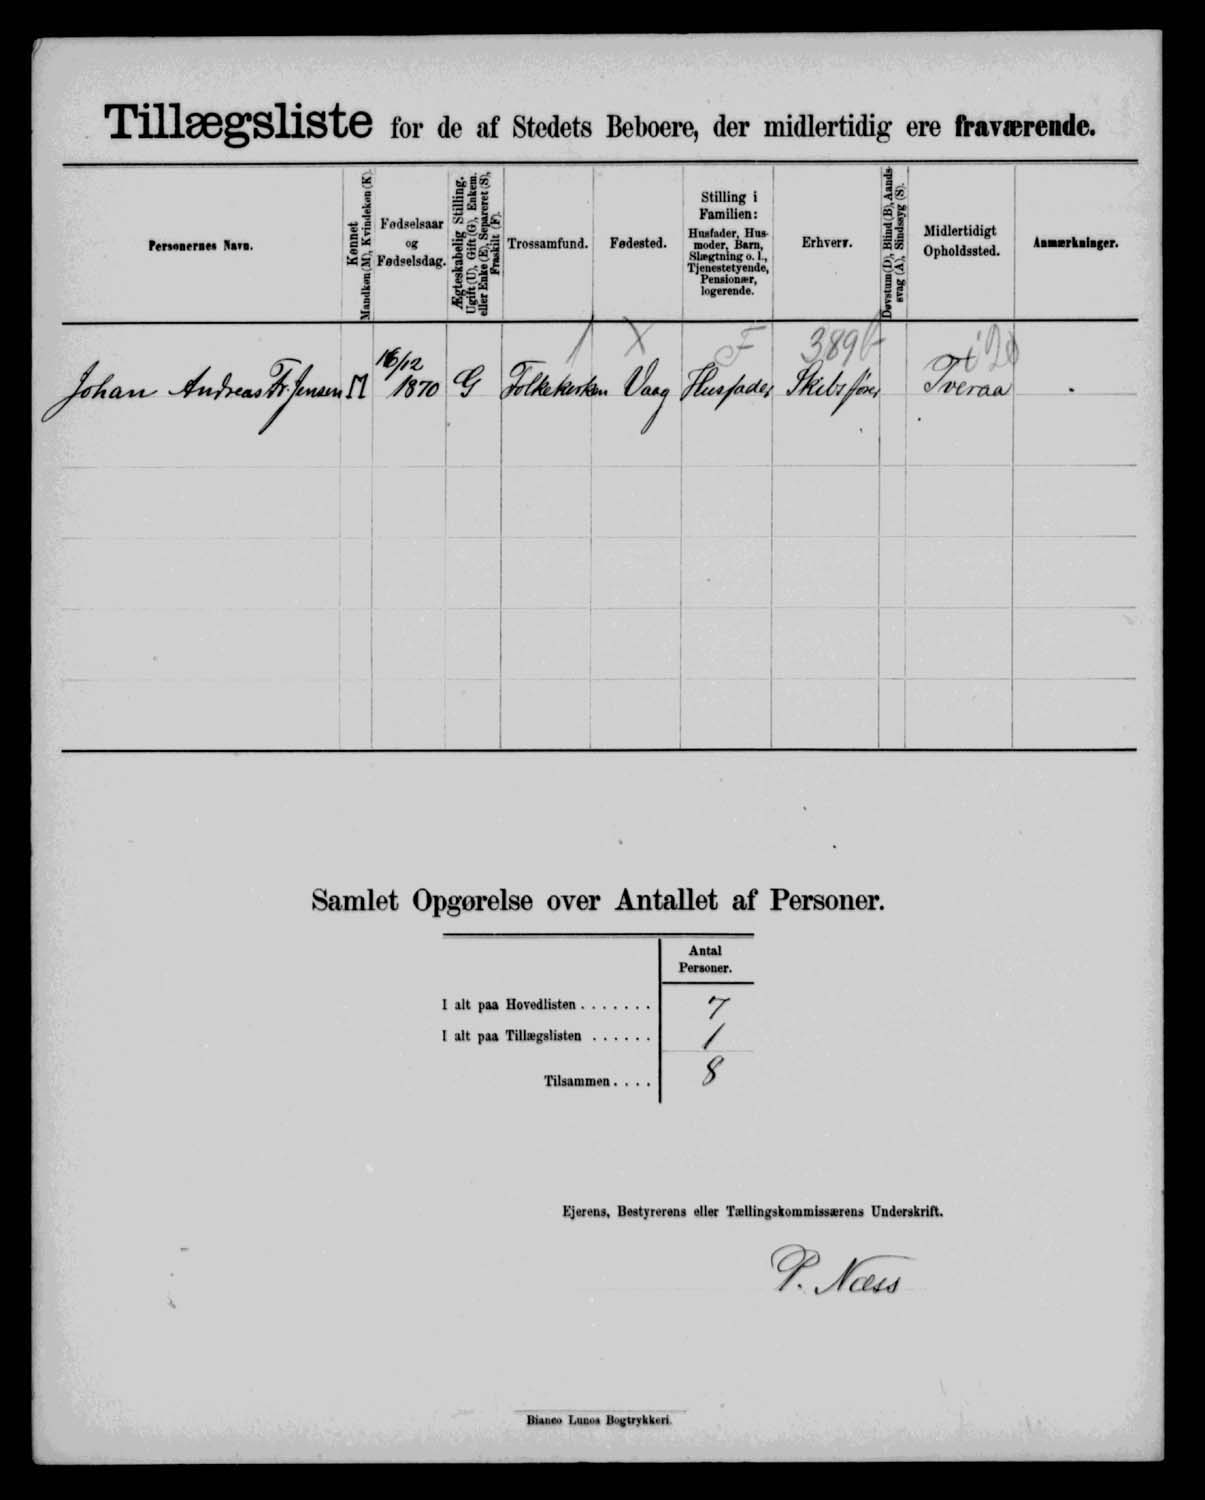 Tillægsliste for de af Stedets Beboere, der midlertidig ere fraværende.
Personernes Navn.
Kønnet
Mandkøn (M), Kvindekøn (K).
Fødselsaar
og
Fødselsdag.
Ægteskabelig Stilling.
Ugift (U), Gift (G), Enkem.
eller Enke (E), Separeret (S),
Fraskilt (F).
Trossamfund.
Fødested.
Stilling i
Familien:
Husfader, Hus-
moder, Barn,
Slægtning o. l.,
Tjenestetyende,
Pensionær,
logerende.
Erhverv.
Døvstum (D), Blind (B), Aands-
svag (A), Sindssyg (S).
Midlertidigt
Opholdssted.
Anmærkninger.
1 X F 389
16/12
Johan Andreas Fr. Jensen M 1870 G Folkekirken Vaag Husfader Skibsfører Tveraa .
Samlet Opgørelse over Antallet af Personer.
Antal
Personer.
I alt paa Hovedlisten . . . . . . . 7
I alt paa Tillægslisten . . . . . . 1
Tilsammen . . . . 8
Ejerens, Bestyrerens eller Tællingskommissærens Underskrift.
P. Næss
Bianco Lunos Bogtrykkeri.